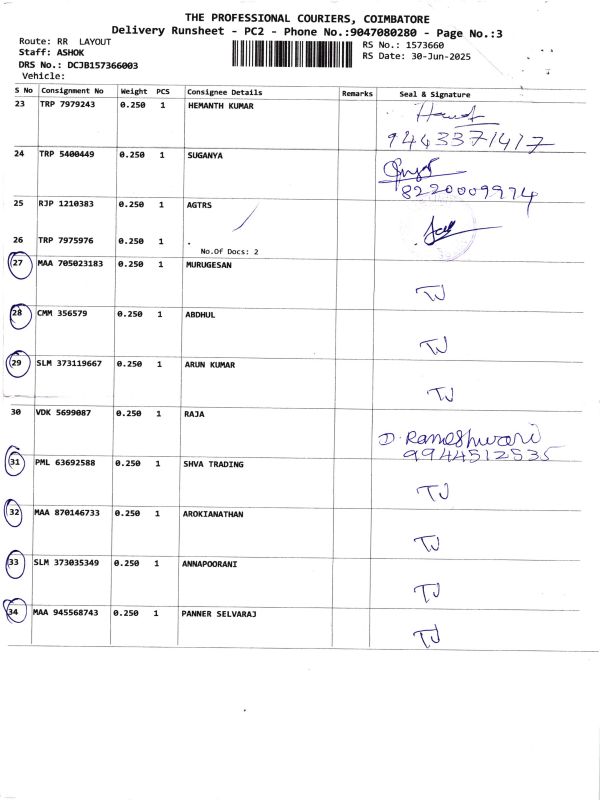 THE PROFESSIONAL COURIERS, COIMBATORE
Delivery Runsheet - PC2 - Phone No.:9047080280 - Page No.:3
Route: RR LAYOUT
RS No.: 1573660
Staff: ASHOK
RS Date: 30-Jun-2025
DRS No.: DCJB157366003
Vehicle:
S No Consignment No Weight PCS Consignee Details Remarks Seal & Signature
23 TRP 7979243 0.250 1 HEMANTH KUMAR
9443371417
24 TRP 5400449 0.250 1 SUGANYA
8220009974
25 RJP 1210383 0.250 1 AGTRS
26 TRP 7975976 0.250 1 .
No.Of Docs: 2
27 MAA 705023183 0.250 1 MURUGESAN
TJ
28 CMM 356579 0.250 1 ABDHUL
TJ
29 SLM 373119667 0.250 1 ARUN KUMAR
TJ
30 VDK 5699087 0.250 1 RAJA
D. Rameshwari
9944512535
31 PML 63692588 0.250 1 SHVA TRADING
TJ
32 MAA 870146733 0.250 1 AROKIANATHAN
TJ
33 SLM 373035349 0.250 1 ANNAPOORANI
TJ
34 MAA 945568743 0.250 1 PANNER SELVARAJ
TJ